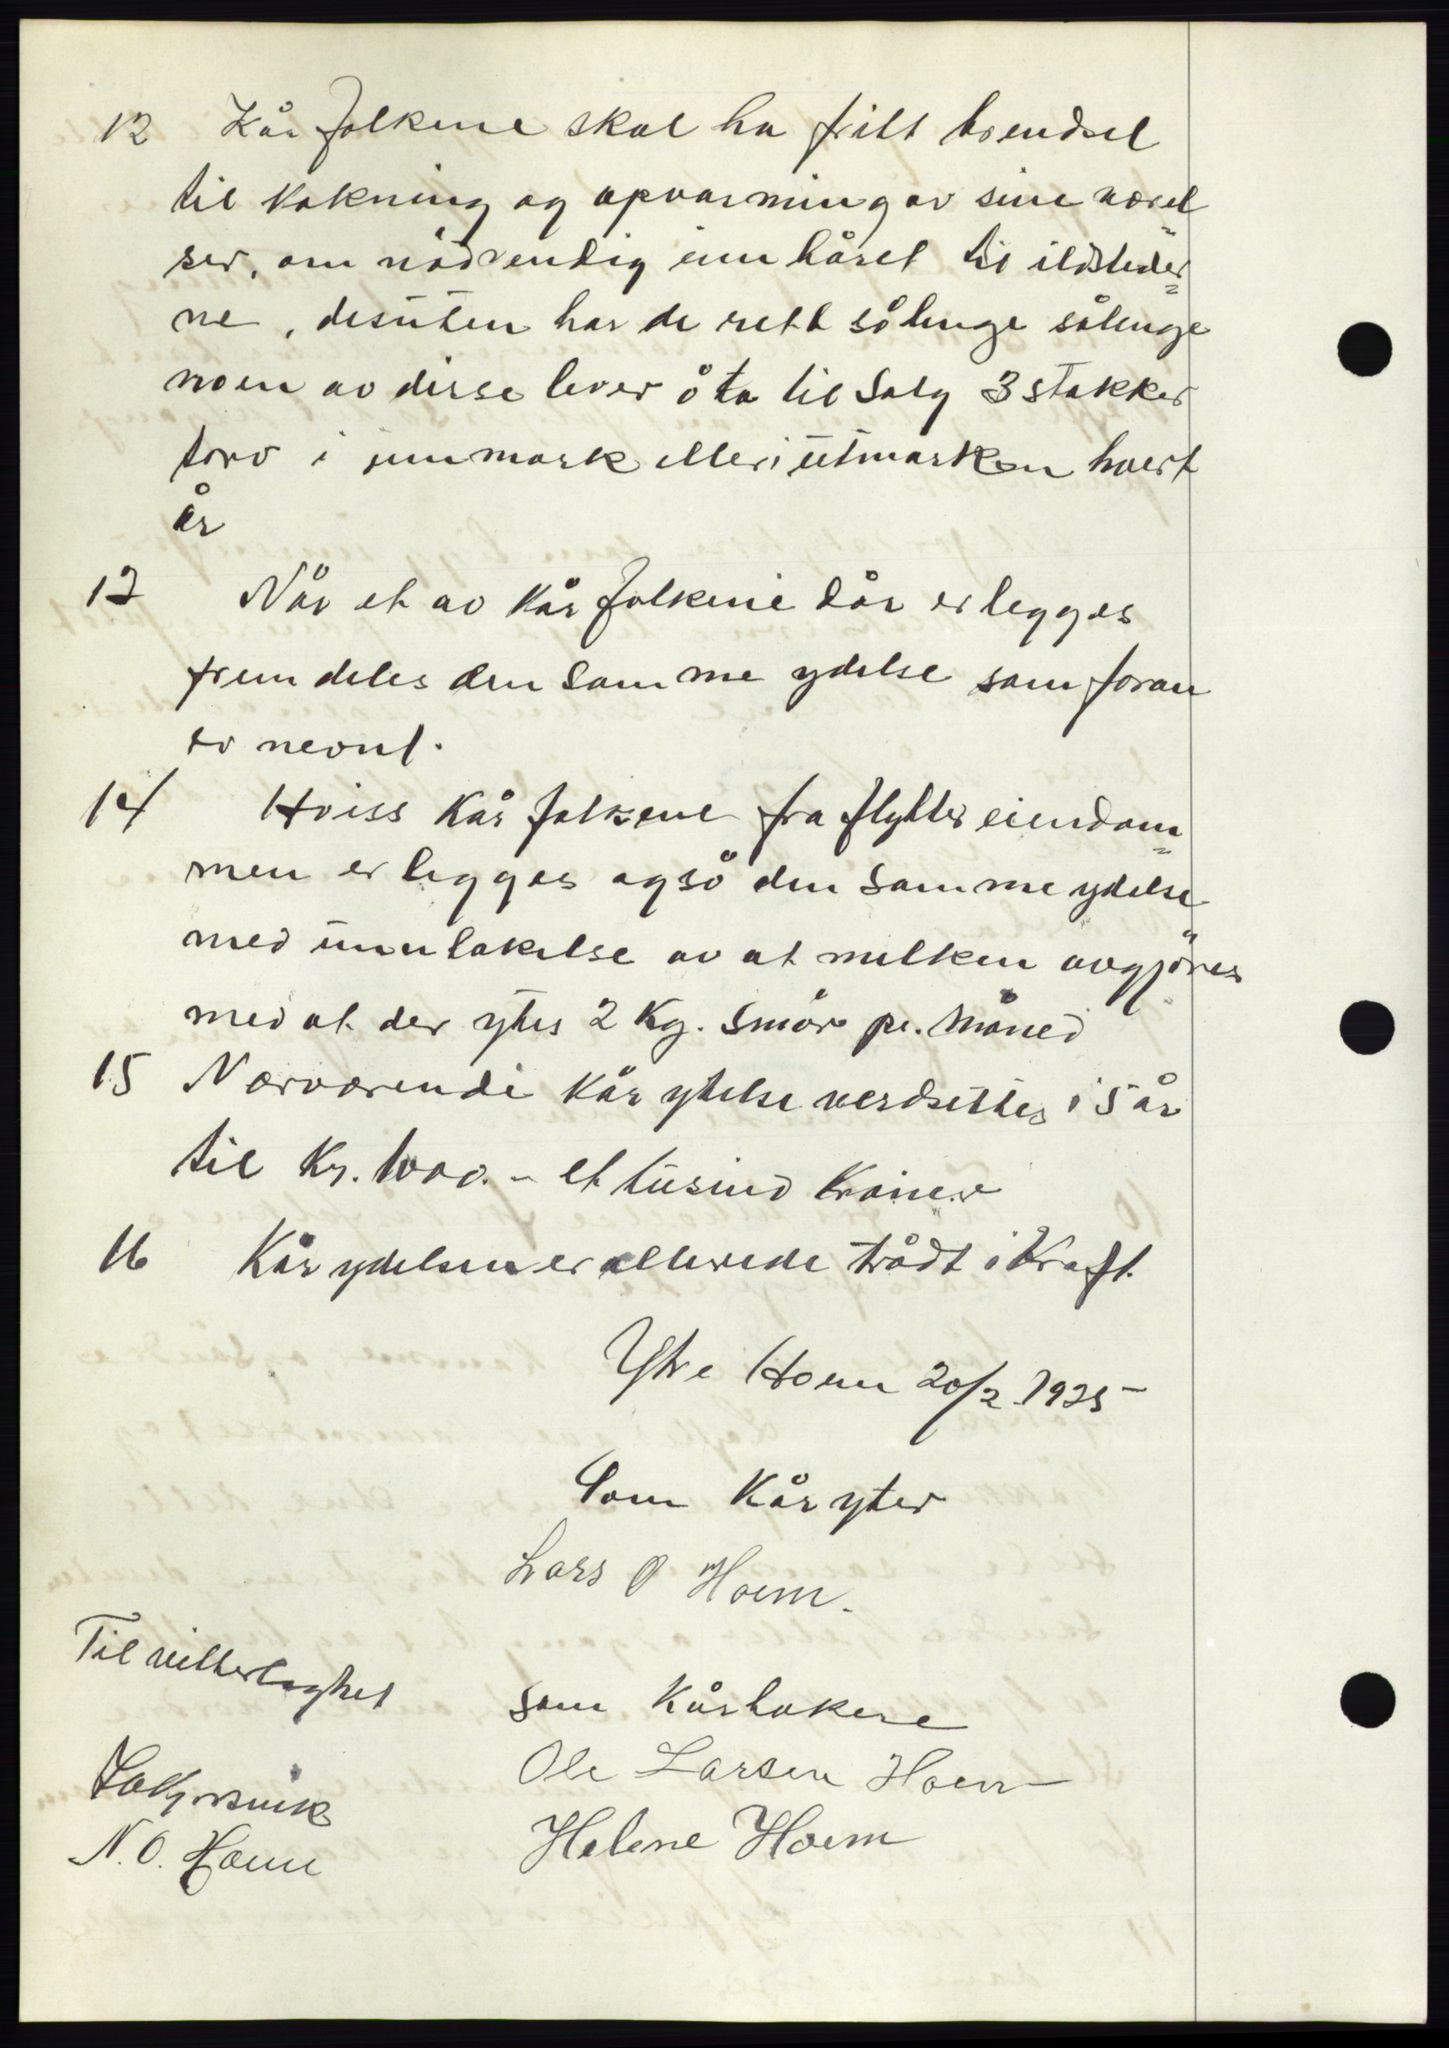 12 Kårfolkene skal ha fritt brendsel
til kokning og opvarming av sine værel
ser, om nødvendig innbåret til ildsteder=
ne, desuten har de rett sålenge sålenge
noen av disse lever å ta til Salg 3 stakker
torv i innmark eller i utmarken hvert
år
13 Når et av kårfolkene dør erlegges
fremdeles den samme ydelse som foran
er nevnt.
14 Hviss kårfolkene fraflytter eiendom=
men erlegges også den samme ydelse
med unntakelse av at melken avgjöres
med at der ytes 2 Kg. smör pr. Måned
15 Nærværende Kårytelse verdsettes i 5 år
til Kr. 1000. - et tusind Kroner
16 Kårydelsen er allerede trådt i Kraft.
Ytre Hoem 20/2 1935 -
Som Kåryter
Lars O Hoem.
Til vitterlighet
Som Kårtakere
Ole Larsen Hoem
N. O. Hoem
Helene Hoem